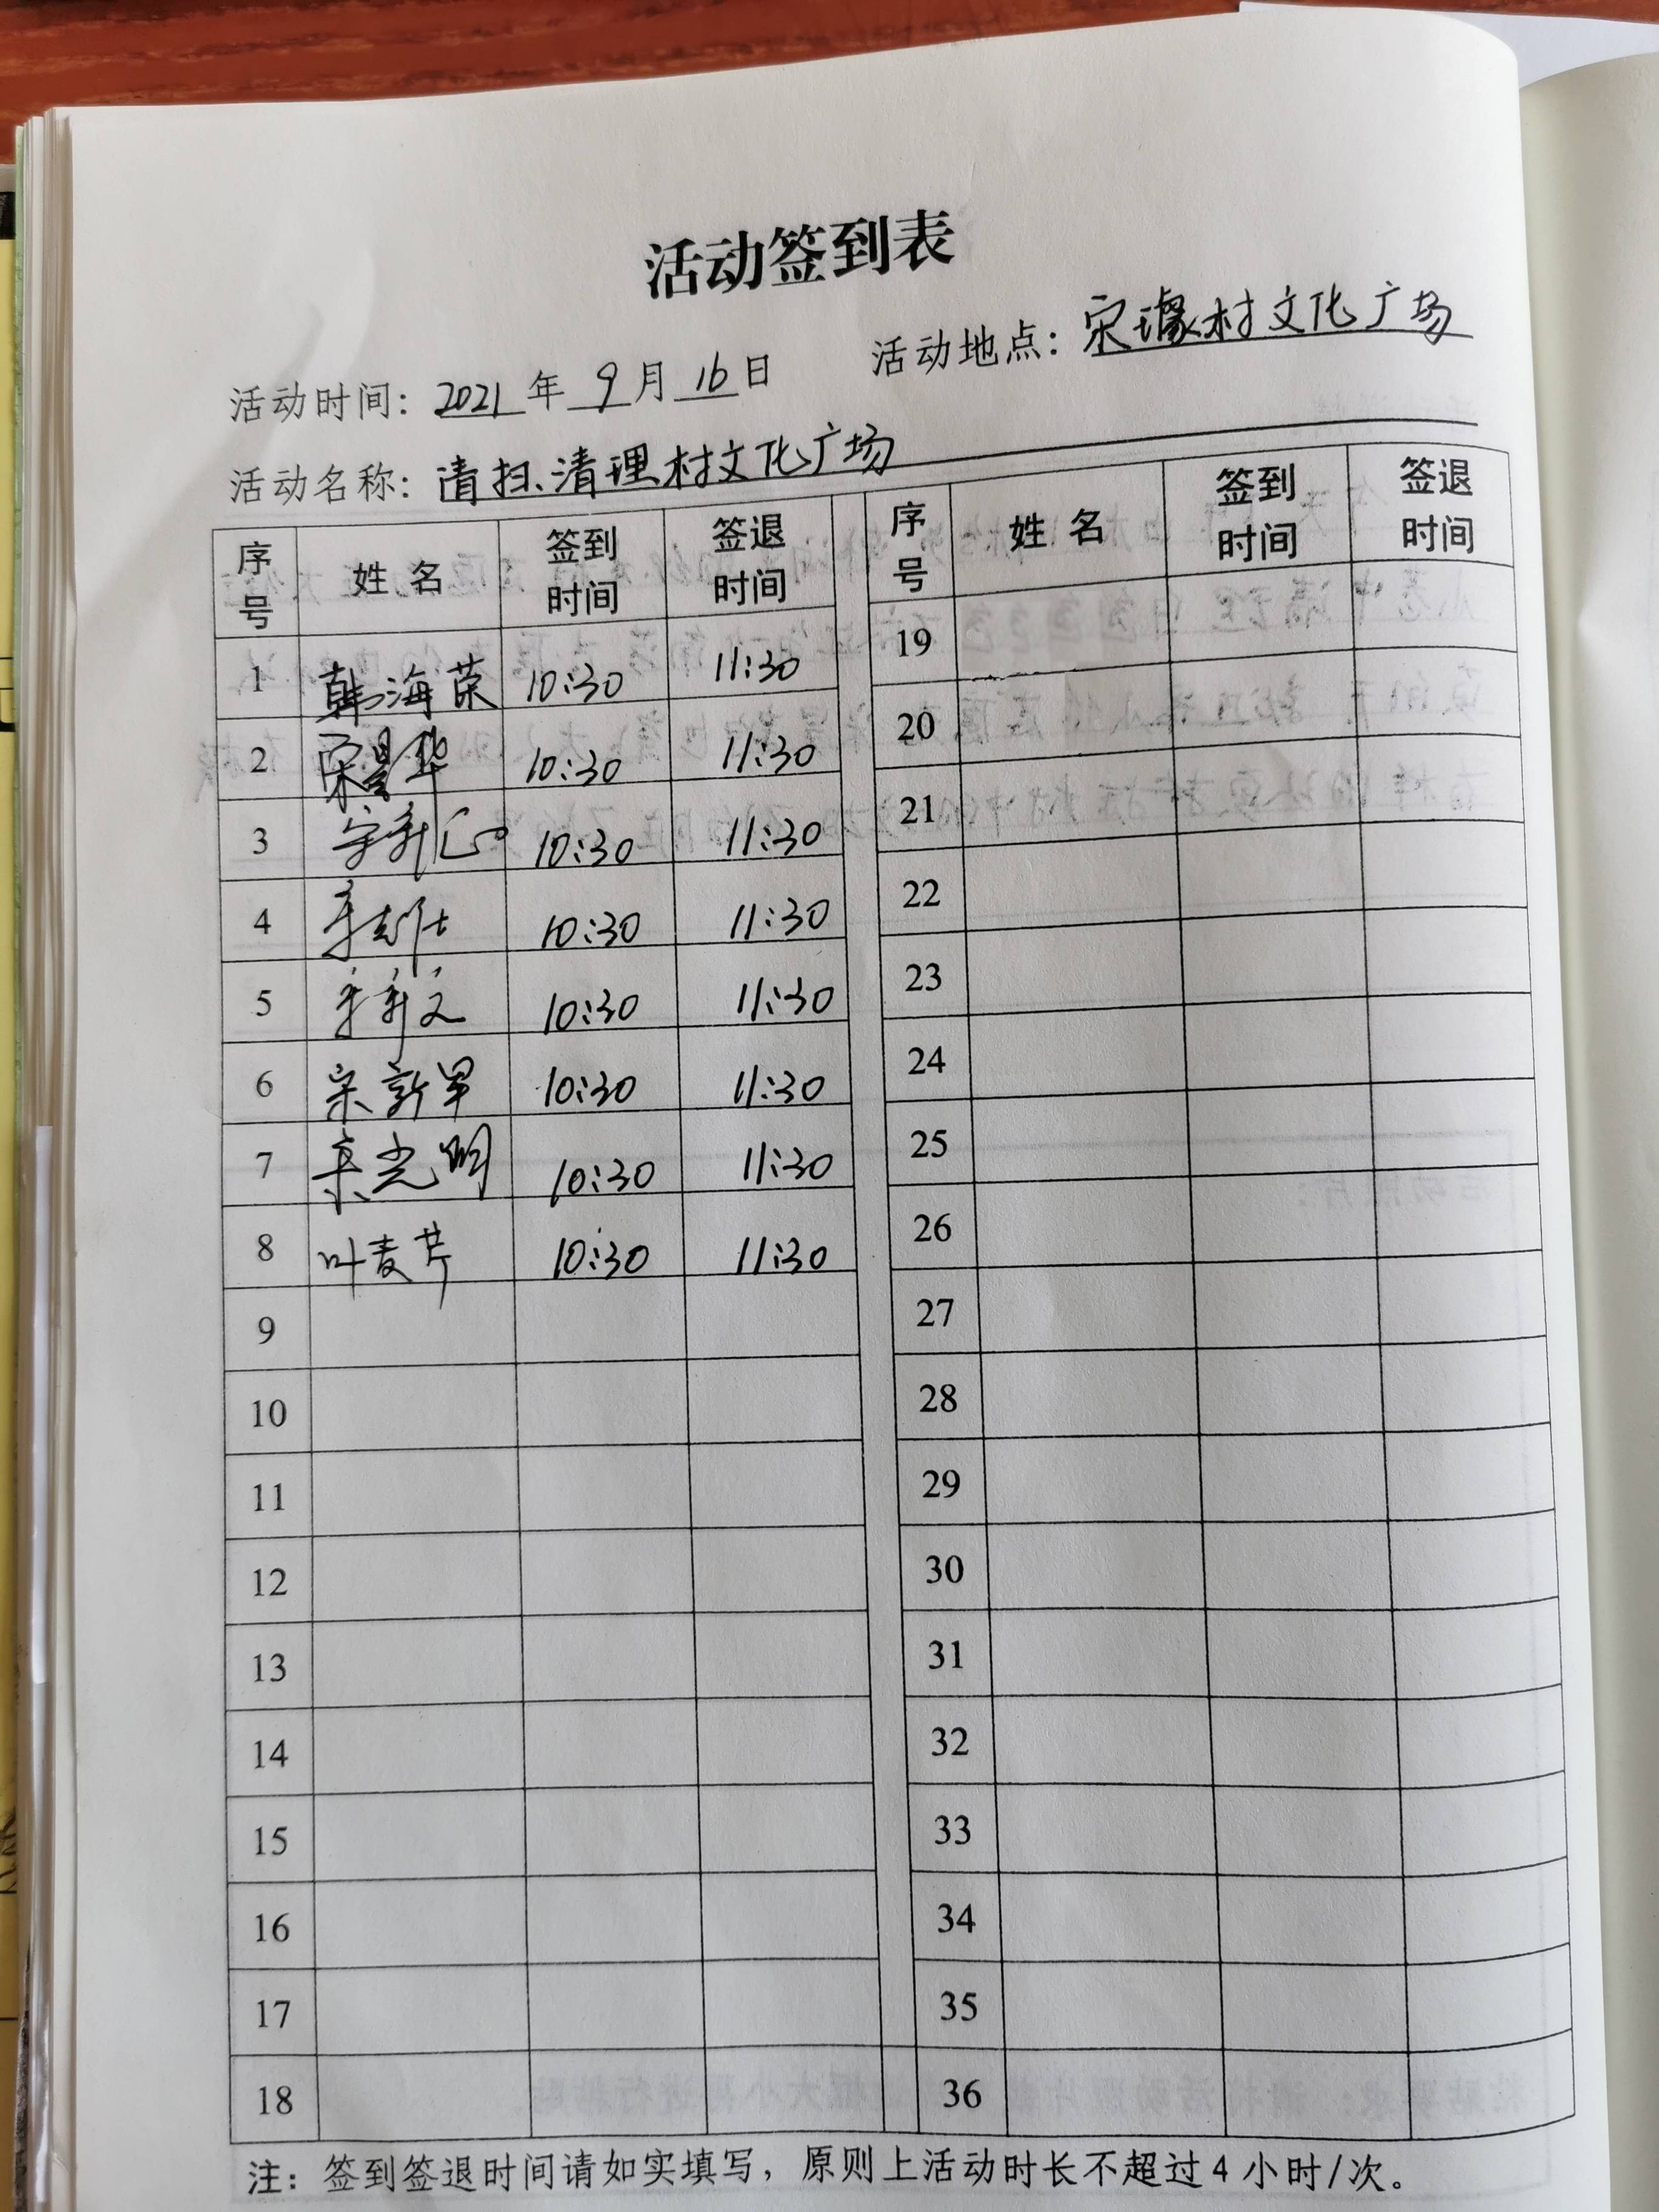 活动签到表
活动时间：2021年9月16日 活动地点：宋壕村文化广场
活动名称：清扫、清理村文化广场
序号 姓名 签到时间 签退时间 序号 姓名 签到时间 签退时间
1 韩海荣 10:30 11:30 19
2 宋景华 10:30 11:30 20
3 10:30 11:30 21
4 10:30 11:30 22
5 10:30 11:30 23
6 宋新军 10:30 11:30 24
7 宋光明 10:30 11:30 25
8 叶麦芹 10:30 11:30 26
9 27
10 28
11 29
12 30
13 31
14 32
15 33
16 34
17 35
18 36
注：签到签退时间请如实填写，原则上活动时长不超过4小时/次。